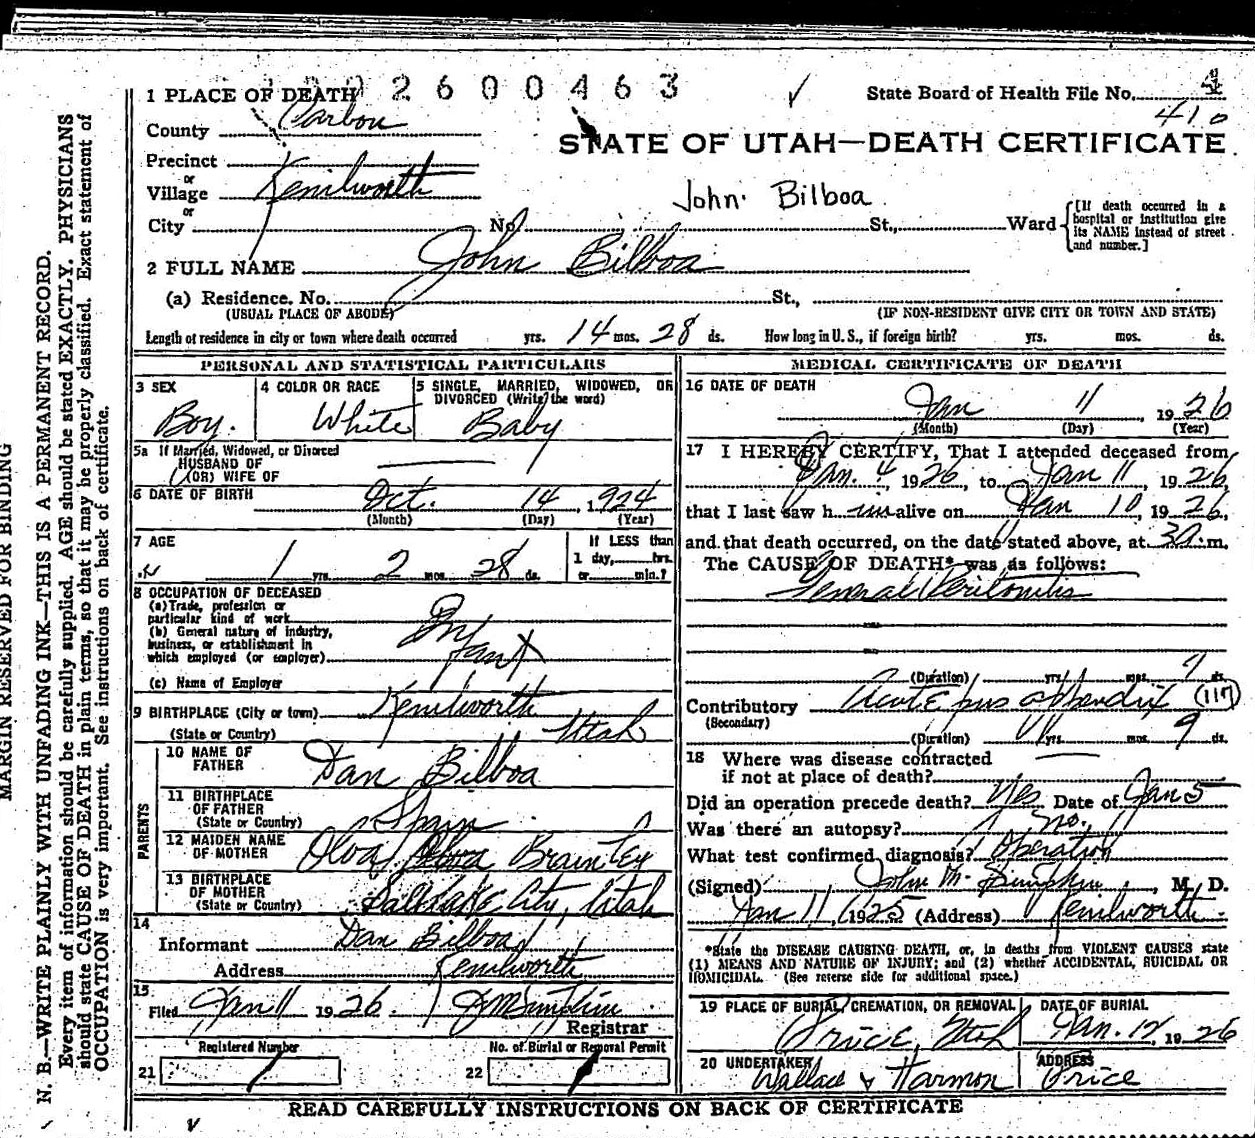 2600463
1 PLACE OF DEATH
State Board of Health File No. 4
410
County Carbon
STATE OF UTAH—DEATH CERTIFICATE
Precinct
or
Village Kenilworth
or
John Bilboa
City No. St., Ward [If death occurred in a hospital or institution give its NAME instead of street and number.]
2 FULL NAME John Bilboa
(a) Residence. No. St.,
(USUAL PLACE OF ABODE) (IF NON-RESIDENT GIVE CITY OR TOWN AND STATE)
Length of residence in city or town where death occurred yrs. 14 mos. 28 ds. How long in U.S., if foreign birth? yrs. mos. ds.
PERSONAL AND STATISTICAL PARTICULARS
3 SEX 4 COLOR OR RACE 5 SINGLE, MARRIED, WIDOWED, OR
DIVORCED (Write the word)
Boy. White Baby
5a If Married, Widowed, or Divorced
HUSBAND OF
(OR) WIFE OF
6 DATE OF BIRTH Oct. 14, 1924
(Month) (Day) (Year)
7 AGE If LESS than
1 day, hrs.
1 yrs. 2 mos. 28 ds. or min.?
8 OCCUPATION OF DECEASED
(a) Trade, profession or
particular kind of work
(b) General nature of industry,
business, or establishment in
which employed (or employer)
(c) Name of Employer
9 BIRTHPLACE (City or town) Kenilworth
(State or Country) Utah
PARENTS
10 NAME OF
FATHER Dan Bilboa
11 BIRTHPLACE
OF FATHER
(State or Country) Spain
12 MAIDEN NAME
OF MOTHER Olva Brantley
13 BIRTHPLACE
OF MOTHER
(State or Country) Salt Lake City, Utah
14
Informant Dan Bilboa
Address Kenilworth
15
Filed Jan 11 1926. J M Simpkin
Registrar
Registered Number No. of Burial or Removal Permit
21 22
MEDICAL CERTIFICATE OF DEATH
16 DATE OF DEATH
Jan 11, 1926
(Month) (Day) (Year)
17 I HEREBY CERTIFY, That I attended deceased from
Jan. 4 1926, to Jan 11, 1926,
that I last saw h im alive on Jan 10, 1926,
and that death occurred, on the date stated above, at m.
The CAUSE OF DEATH* was as follows:
General Peritonitis
(Duration) yrs. mos. ds.
Contributory Acute pus appendix (117)
(Secondary)
(Duration) yrs. mos. 9 ds.
18 Where was disease contracted
if not at place of death?
Did an operation precede death? Yes Date of Jan 5
Was there an autopsy? no.
What test confirmed diagnosis? Operation
(Signed) John M. Simpkin, M. D.
Jan 11, 1925 (Address) Kenilworth
*State the DISEASE CAUSING DEATH, or, in deaths from VIOLENT CAUSES state
(1) MEANS AND NATURE OF INJURY; and (2) whether ACCIDENTAL, SUICIDAL OR
HOMICIDAL. (See reverse side for additional space.)
19 PLACE OF BURIAL, CREMATION, OR REMOVAL DATE OF BURIAL
Price, Utah Jan. 12, 1926
20 UNDERTAKER ADDRESS
Wallace & Harmon Price
READ CAREFULLY INSTRUCTIONS ON BACK OF CERTIFICATE
MARGIN RESERVED FOR BINDING
N. B.—WRITE PLAINLY WITH UNFADING INK—THIS IS A PERMANENT RECORD.
Every item of information should be carefully supplied. AGE should be stated EXACTLY. PHYSICIANS
should state CAUSE OF DEATH in plain terms, so that it may be properly classified. Exact statement of
OCCUPATION is very important. See instructions on back of certificate.